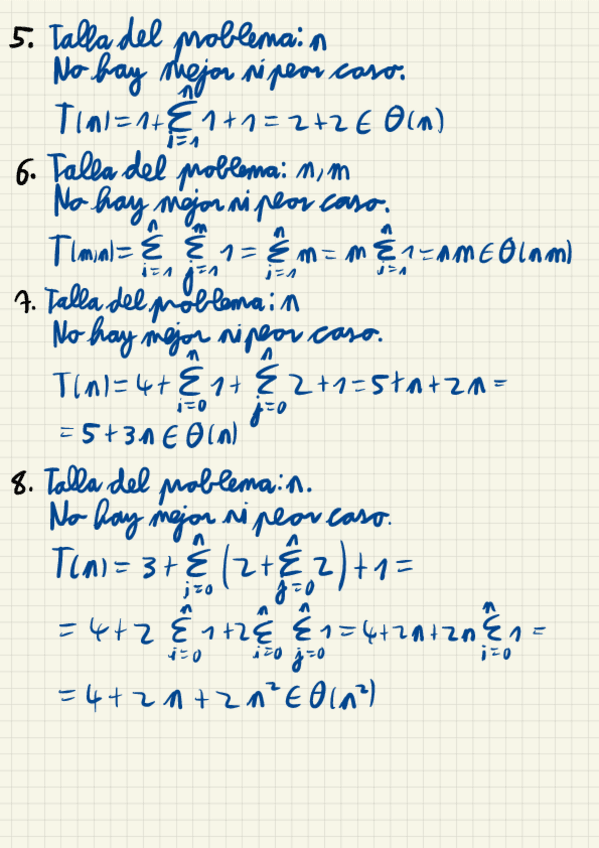 5. Talla del problema: n
No hay mejor ni peor caso.
T(n) = 1 + Σ_{i=1}^{n} 1 + 1 = 2 + 2 ∈ Θ(n)
6. Talla del problema: n, m
No hay mejor ni peor caso.
T(m,n) = Σ_{i=1}^{n} Σ_{j=1}^{m} 1 = Σ_{i=1}^{n} m = m Σ_{i=1}^{n} 1 = nm ∈ Θ(nm)
7. Talla del problema: n
No hay mejor ni peor caso.
T(n) = 4 + Σ_{i=0}^{n} 1 + Σ_{j=0}^{n} 2 + 1 = 5 + n + 2n =
= 5 + 3n ∈ Θ(n)
8. Talla del problema: n.
No hay mejor ni peor caso.
T(n) = 3 + Σ_{i=0}^{n} (2 + Σ_{j=0}^{n} 2) + 1 =
= 4 + 2 Σ_{i=0}^{n} 1 + 2 Σ_{i=0}^{n} Σ_{j=0}^{n} 1 = 4 + 2n + 2n Σ_{i=0}^{n} 1 =
= 4 + 2n + 2n² ∈ Θ(n²)